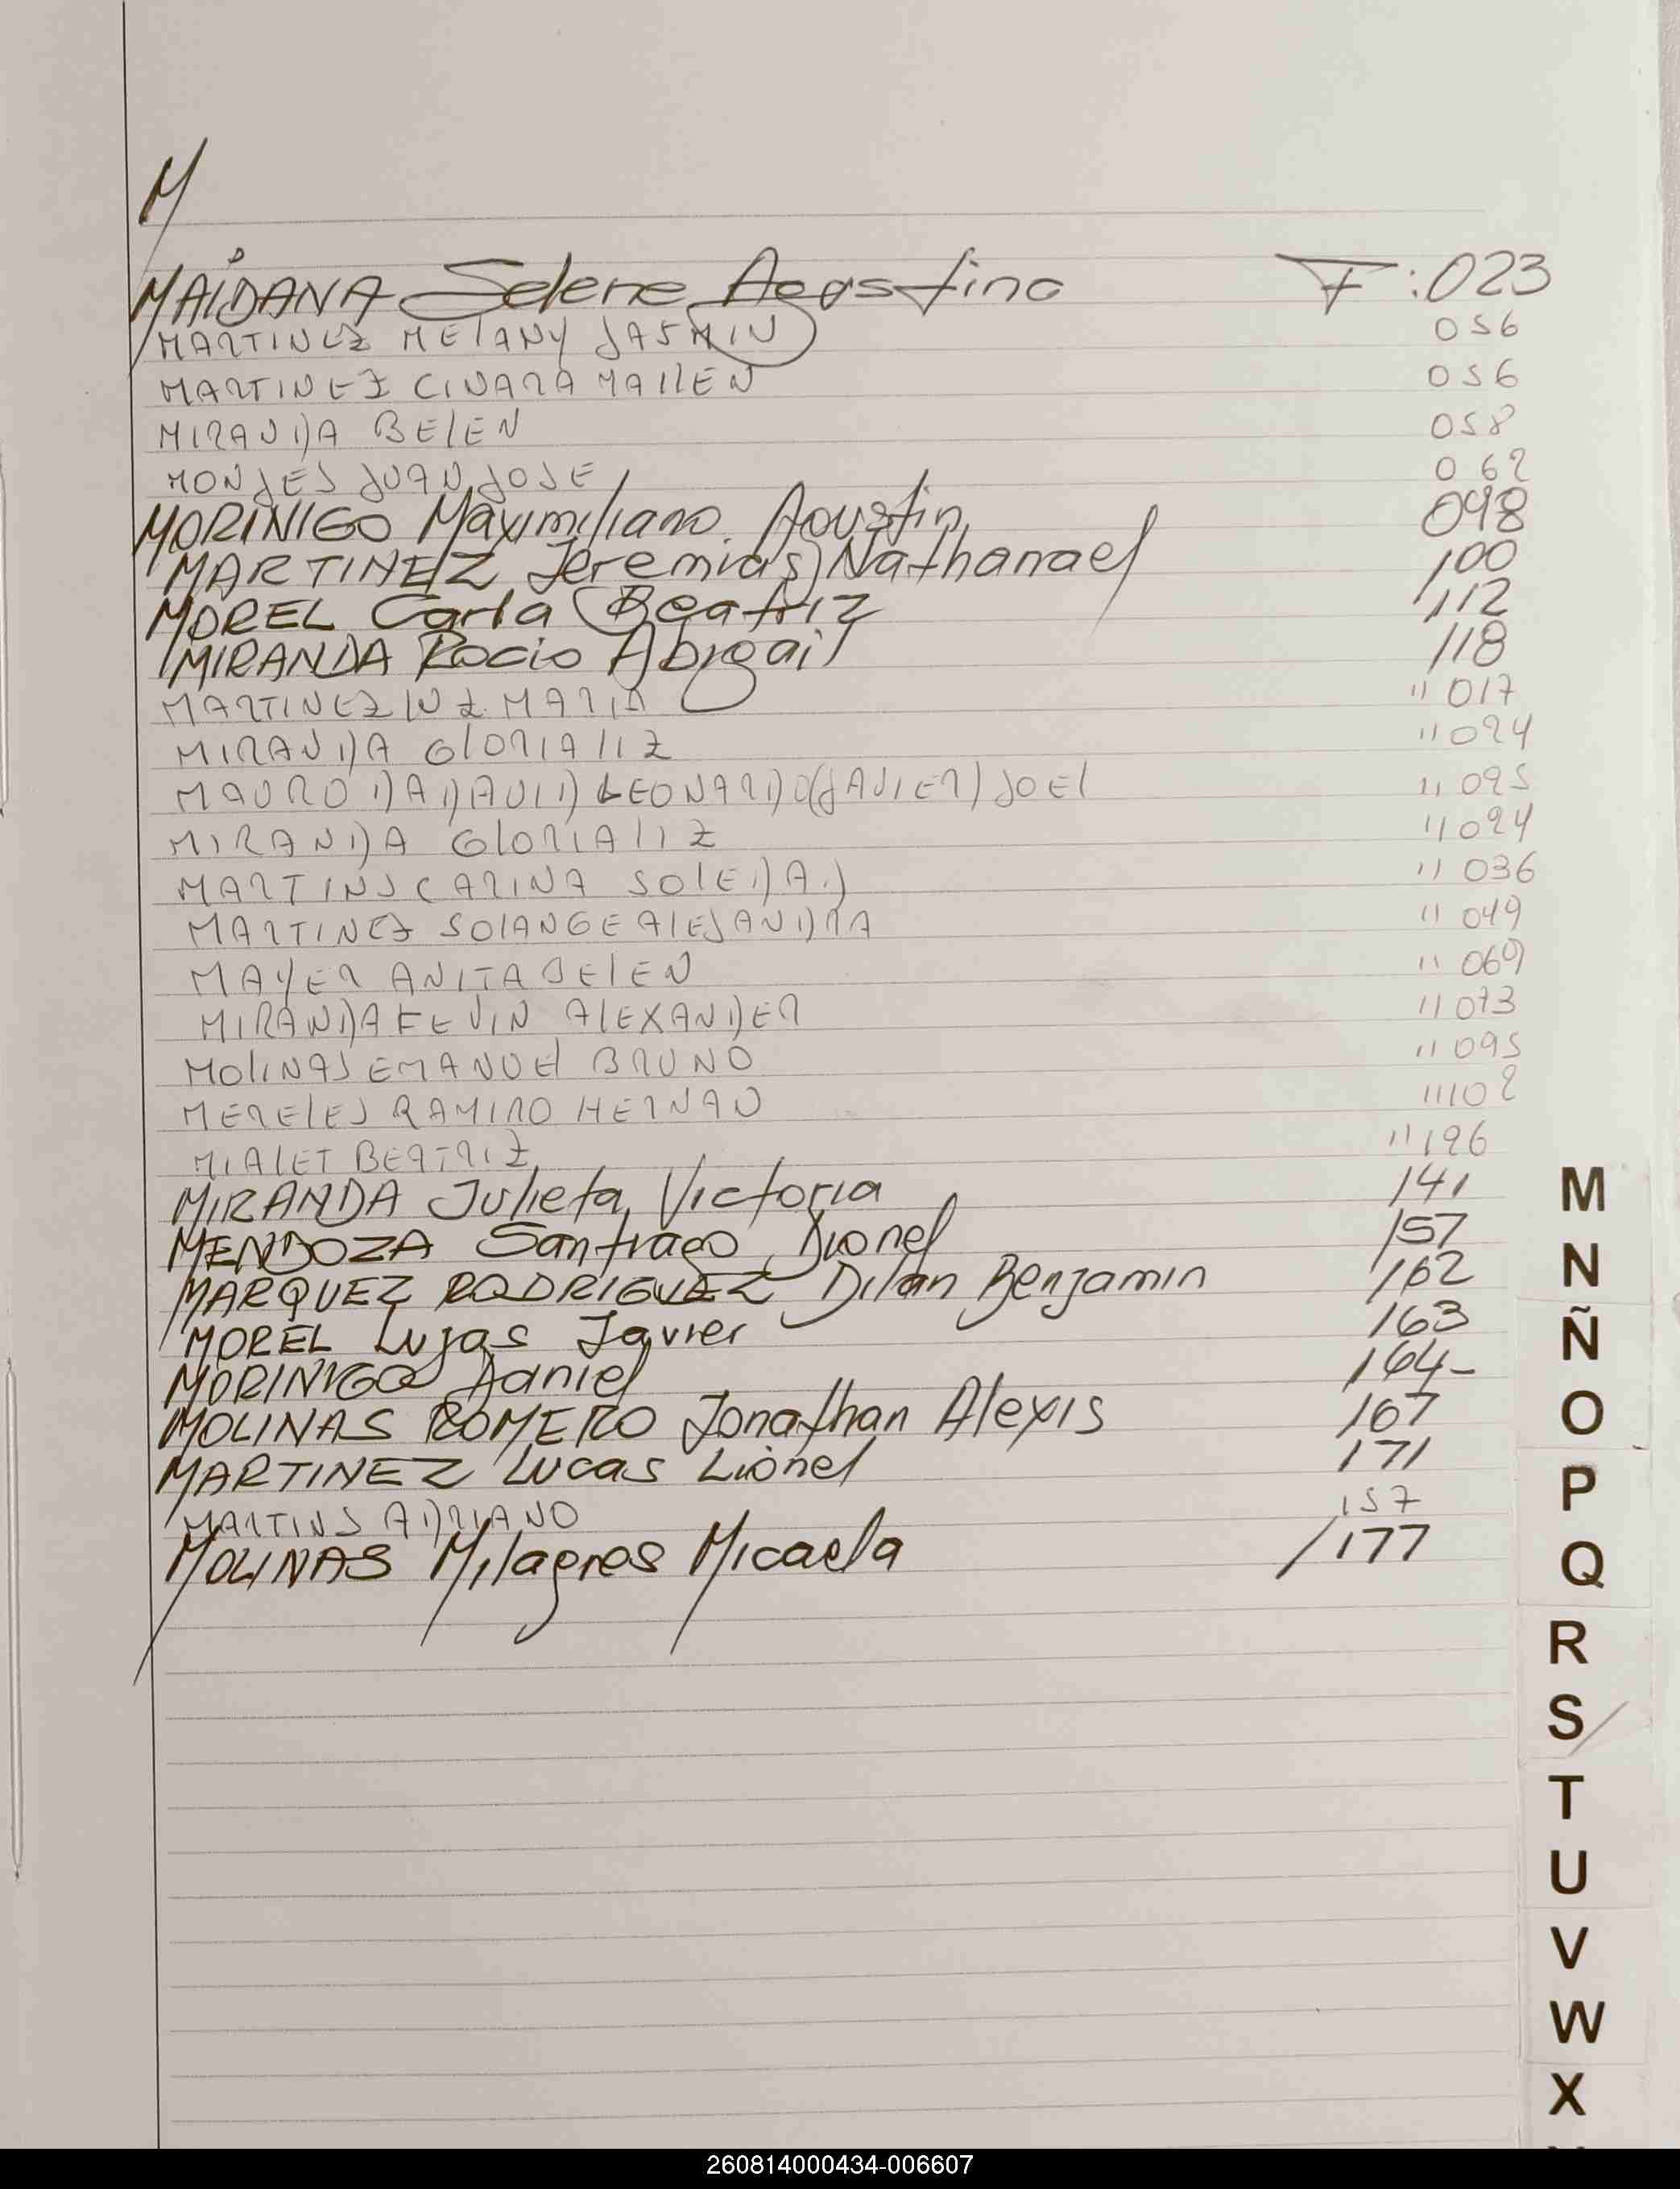 M
MAIDANA Selene Agostina F:023
MARTINEZ MELANY JASMIN 056
MARTINEZ CINARA MAILEN 056
MIRANDA BELEN 058
MONJES JUAN JOSE 062
MORINIGO Maximiliano Agustin 098
MARTINEZ Jeremias Nathanael 100
MOREL Carla Beatriz 112
MIRANDA Rocio Abigail 118
MARTINEZ LUZ MARIA " 017
MIRANDA GLORIA LIZ " 024
MAURO DA DAVID LEONARDO (JAVIER) JOEL " 025
MIRANDA GLORIA LIZ " 024
MARTINS CARINA SOLEDA.) " 036
MARTINEZ SOLANGE ALEJANDRA " 049
MAYER ANITA BELEN " 069
MIRANDA KEVIN ALEXANDER " 073
MOLINAS EMANUEL BRUNO " 095
MERELES RAMIRO HERNAN " 102
MIALET BEATRIZ " 126
MIRANDA Julieta Victoria 141
MENDOZA Santiago Dionel 157
MARQUEZ RODRIGUEZ Dilan Benjamin 162
MOREL Lujas Javier 163
MORINIGO Daniel 164-
MOLINAS ROMERO Jonathan Alexis 167
MARTINEZ Lucas Lionel 171
MARTINS ADRIANO 157
MOLINAS Milagros Micaela /177
M
N
Ñ
O
P
Q
R
S
T
U
V
W
X
260814000434-006607